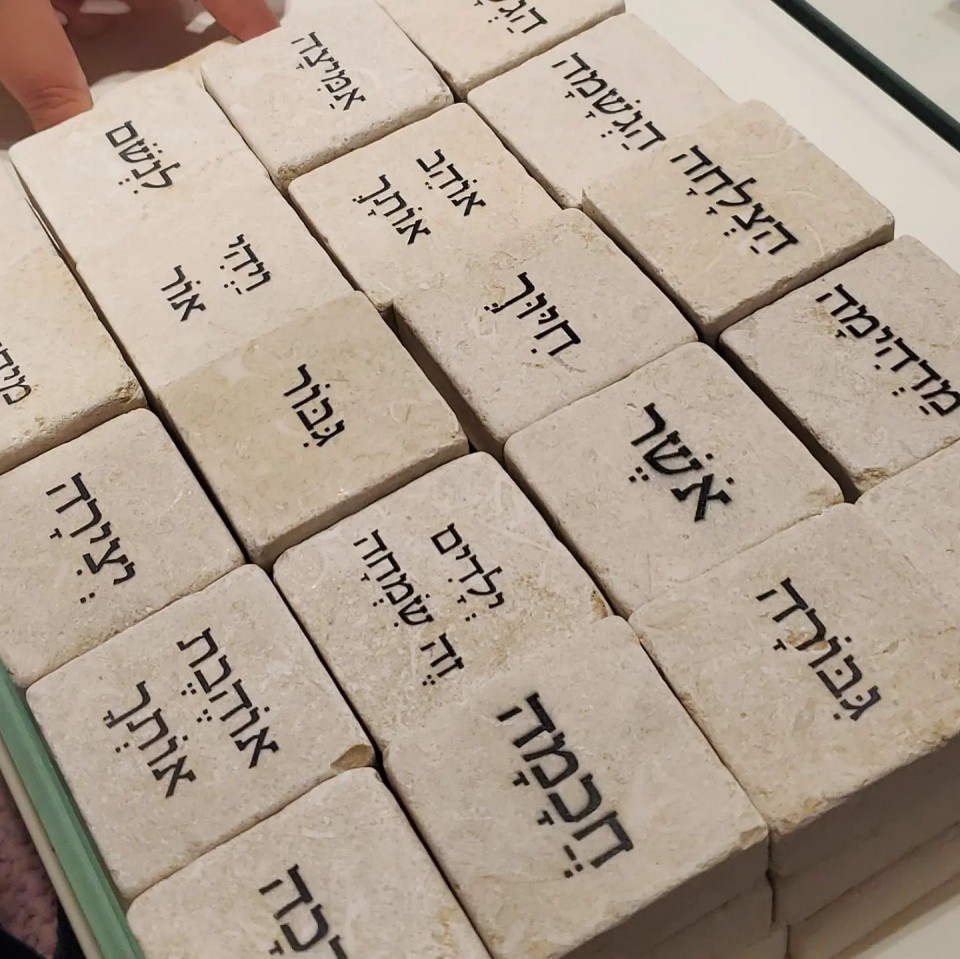 אַמִּיצָה
הַגְשָׁמָה
הַצְלָחָה
לִנְשֹׁם
אוֹהֵב
אוֹתָךְ
וִיְהִי
אוֹר
חִיּוּךְ
מַדְהִימָה
גִּבּוֹר
אֹשֶׁר
יְצִירָה
יְלָדִים
זֶה שִׂמְחָה
גִּבּוֹרָה
אוֹהֶבֶת
אוֹתְךָ
חֲכָמָה